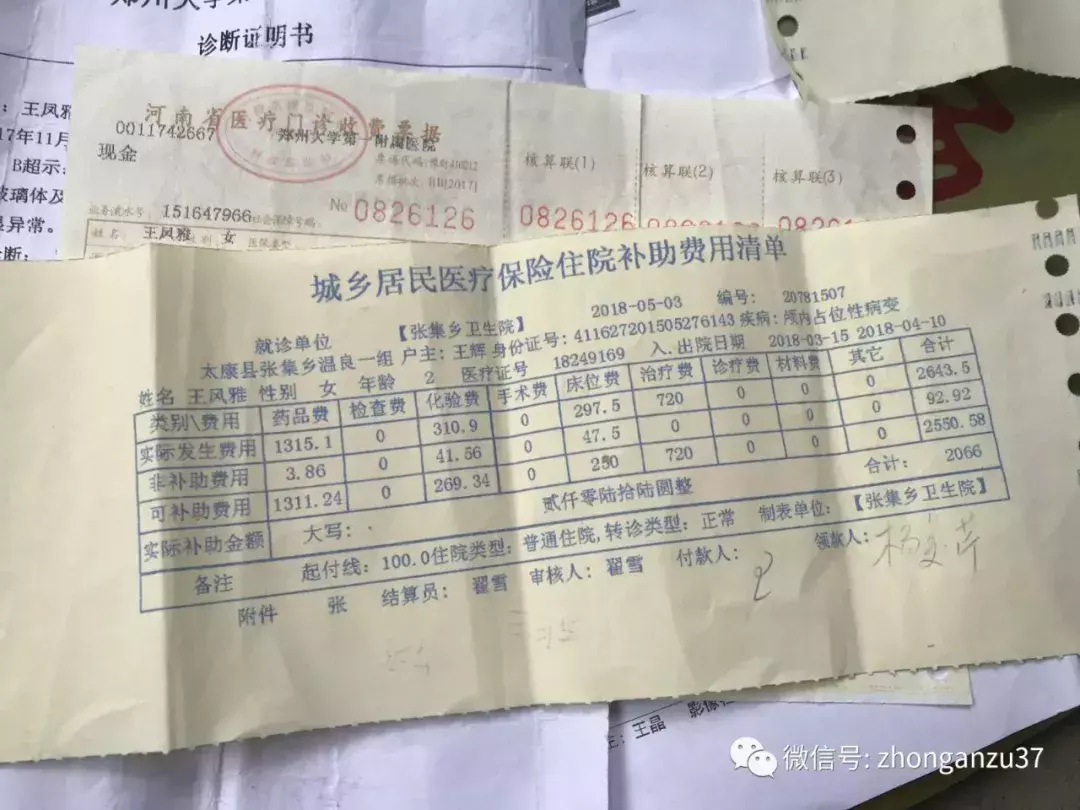 郑州大学第
诊断证明书
：王凤雅
17年11月
B超示：
玻璃体及
显异常。
诊断：
河南省医疗门诊收费票据
0011742667
郑州大学第一附属医院
现金
核算联(1)
核算联(2)
核算联(3)
业务流水号：151647966社会保障号码：
№ 0826126
0826126
0826126
0826126
姓名 王凤雅 性别 女 医保类型
城乡居民医疗保险住院补助费用清单
2018-05-03 编号： 20781507
就诊单位 【张集乡卫生院】
太康县张集乡温良一组 户主：王辉 身份证号：411627201505276143 疾病：颅内占位性病变
姓名 王凤雅 性别 女 年龄 2 医疗证号 18249169 入.出院日期 2018-03-15 2018-04-10
类别\费用 药品费 检查费 化验费 手术费 床位费 治疗费 诊疗费 材料费 其它 合计
实际发生费用 1315.1 0 310.9 0 297.5 720 0 0 0 2643.5
非补助费用 3.86 0 41.56 0 47.5 0 0 0 0 92.92
可补助费用 1311.24 0 269.34 0 250 720 0 0 0 2550.58
实际补助金额 大写： 贰仟零陆拾陆圆整 合计： 2066
备注 起付线：100.0住院类型：普通住院,转诊类型：正常 制表单位：【张集乡卫生院】
附件 张 结算员： 翟雪 审核人：翟雪 付款人： 领款人：
王晶
微信号: zhonganzu37